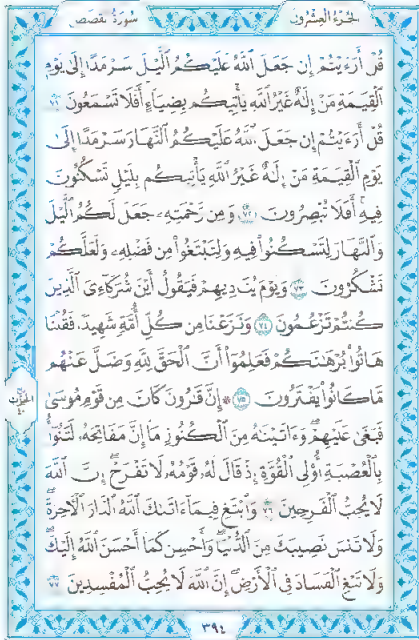 الجزء العشرون
سورة القصص
قُلْ أَرَءَيْتُمْ إِن جَعَلَ ٱللَّهُ عَلَيْكُمُ ٱلَّيْلَ سَرْمَدًا إِلَىٰ يَوْمِ
ٱلْقِيَٰمَةِ مَنْ إِلَٰهٌ غَيْرُ ٱللَّهِ يَأْتِيكُم بِضِيَآءٍ أَفَلَا تَسْمَعُونَ ٧١
قُلْ أَرَءَيْتُمْ إِن جَعَلَ ٱللَّهُ عَلَيْكُمُ ٱلنَّهَارَ سَرْمَدًا إِلَىٰ
يَوْمِ ٱلْقِيَٰمَةِ مَنْ إِلَٰهٌ غَيْرُ ٱللَّهِ يَأْتِيكُم بِلَيْلٍ تَسْكُنُونَ
فِيهِ أَفَلَا تُبْصِرُونَ ٧٢ وَمِن رَّحْمَتِهِۦ جَعَلَ لَكُمُ ٱلَّيْلَ
وَٱلنَّهَارَ لِتَسْكُنُوا۟ فِيهِ وَلِتَبْتَغُوا۟ مِن فَضْلِهِۦ وَلَعَلَّكُمْ
تَشْكُرُونَ ٧٣ وَيَوْمَ يُنَادِيهِمْ فَيَقُولُ أَيْنَ شُرَكَآءِىَ ٱلَّذِينَ
كُنتُمْ تَزْعُمُونَ ٧٤ وَنَزَعْنَا مِن كُلِّ أُمَّةٍ شَهِيدًا فَقُلْنَا
هَاتُوا۟ بُرْهَٰنَكُمْ فَعَلِمُوٓا۟ أَنَّ ٱلْحَقَّ لِلَّهِ وَضَلَّ عَنْهُم
مَّا كَانُوا۟ يَفْتَرُونَ ٧٥ ۞ إِنَّ قَٰرُونَ كَانَ مِن قَوْمِ مُوسَىٰ
فَبَغَىٰ عَلَيْهِمْ ۖ وَءَاتَيْنَٰهُ مِنَ ٱلْكُنُوزِ مَآ إِنَّ مَفَاتِحَهُۥ لَتَنُوٓأُ
بِٱلْعُصْبَةِ أُو۟لِى ٱلْقُوَّةِ إِذْ قَالَ لَهُۥ قَوْمُهُۥ لَا تَفْرَحْ ۖ إِنَّ ٱللَّهَ
لَا يُحِبُّ ٱلْفَرِحِينَ ٧٦ وَٱبْتَغِ فِيمَآ ءَاتَىٰكَ ٱللَّهُ ٱلدَّارَ ٱلْءَاخِرَةَ ۖ
وَلَا تَنسَ نَصِيبَكَ مِنَ ٱلدُّنْيَا ۖ وَأَحْسِن كَمَآ أَحْسَنَ ٱللَّهُ إِلَيْكَ ۖ
وَلَا تَبْغِ ٱلْفَسَادَ فِى ٱلْأَرْضِ ۖ إِنَّ ٱللَّهَ لَا يُحِبُّ ٱلْمُفْسِدِينَ ٧٧
الحزب
٤٠
٣٩٤